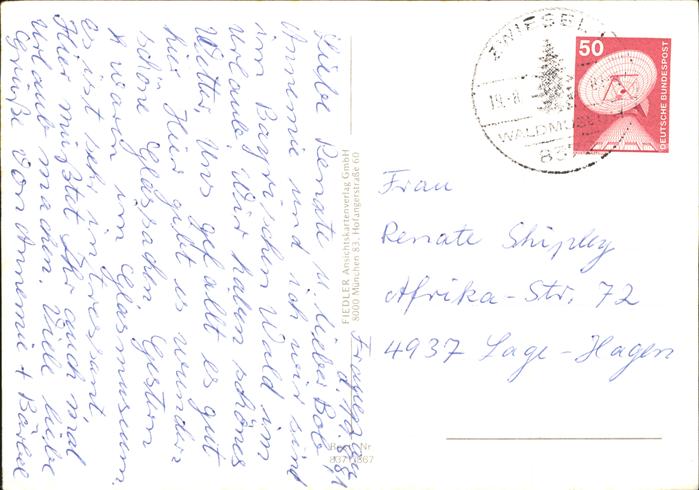 Frauenau
d. 18.8.81
Liebe Renate u. lieber Bob
Annemie und ich wir sind
im Bayrischen Wald im
Urlaub. Wir haben schönes
Wetter. Uns gefällt es gut
hier. Hier gibt es wunder-
schöne Glassachen. Gestern
waren im Glasmuseum.
es ist sehr intressant
Hier müßtet Ihr auch mal
Urlaub machen. Viele liebe
Grüße von Annemie + Bärbel
FIEDLER Ansichtskartenverlag GmbH
8000 München 83, Hofangerstraße 60
ZWIESEL
WALDMUSEUM
50
DEUTSCHE BUNDESPOST
Frau
Renate Shipley
Afrika-Str. 72
4937 Lage-Hagen